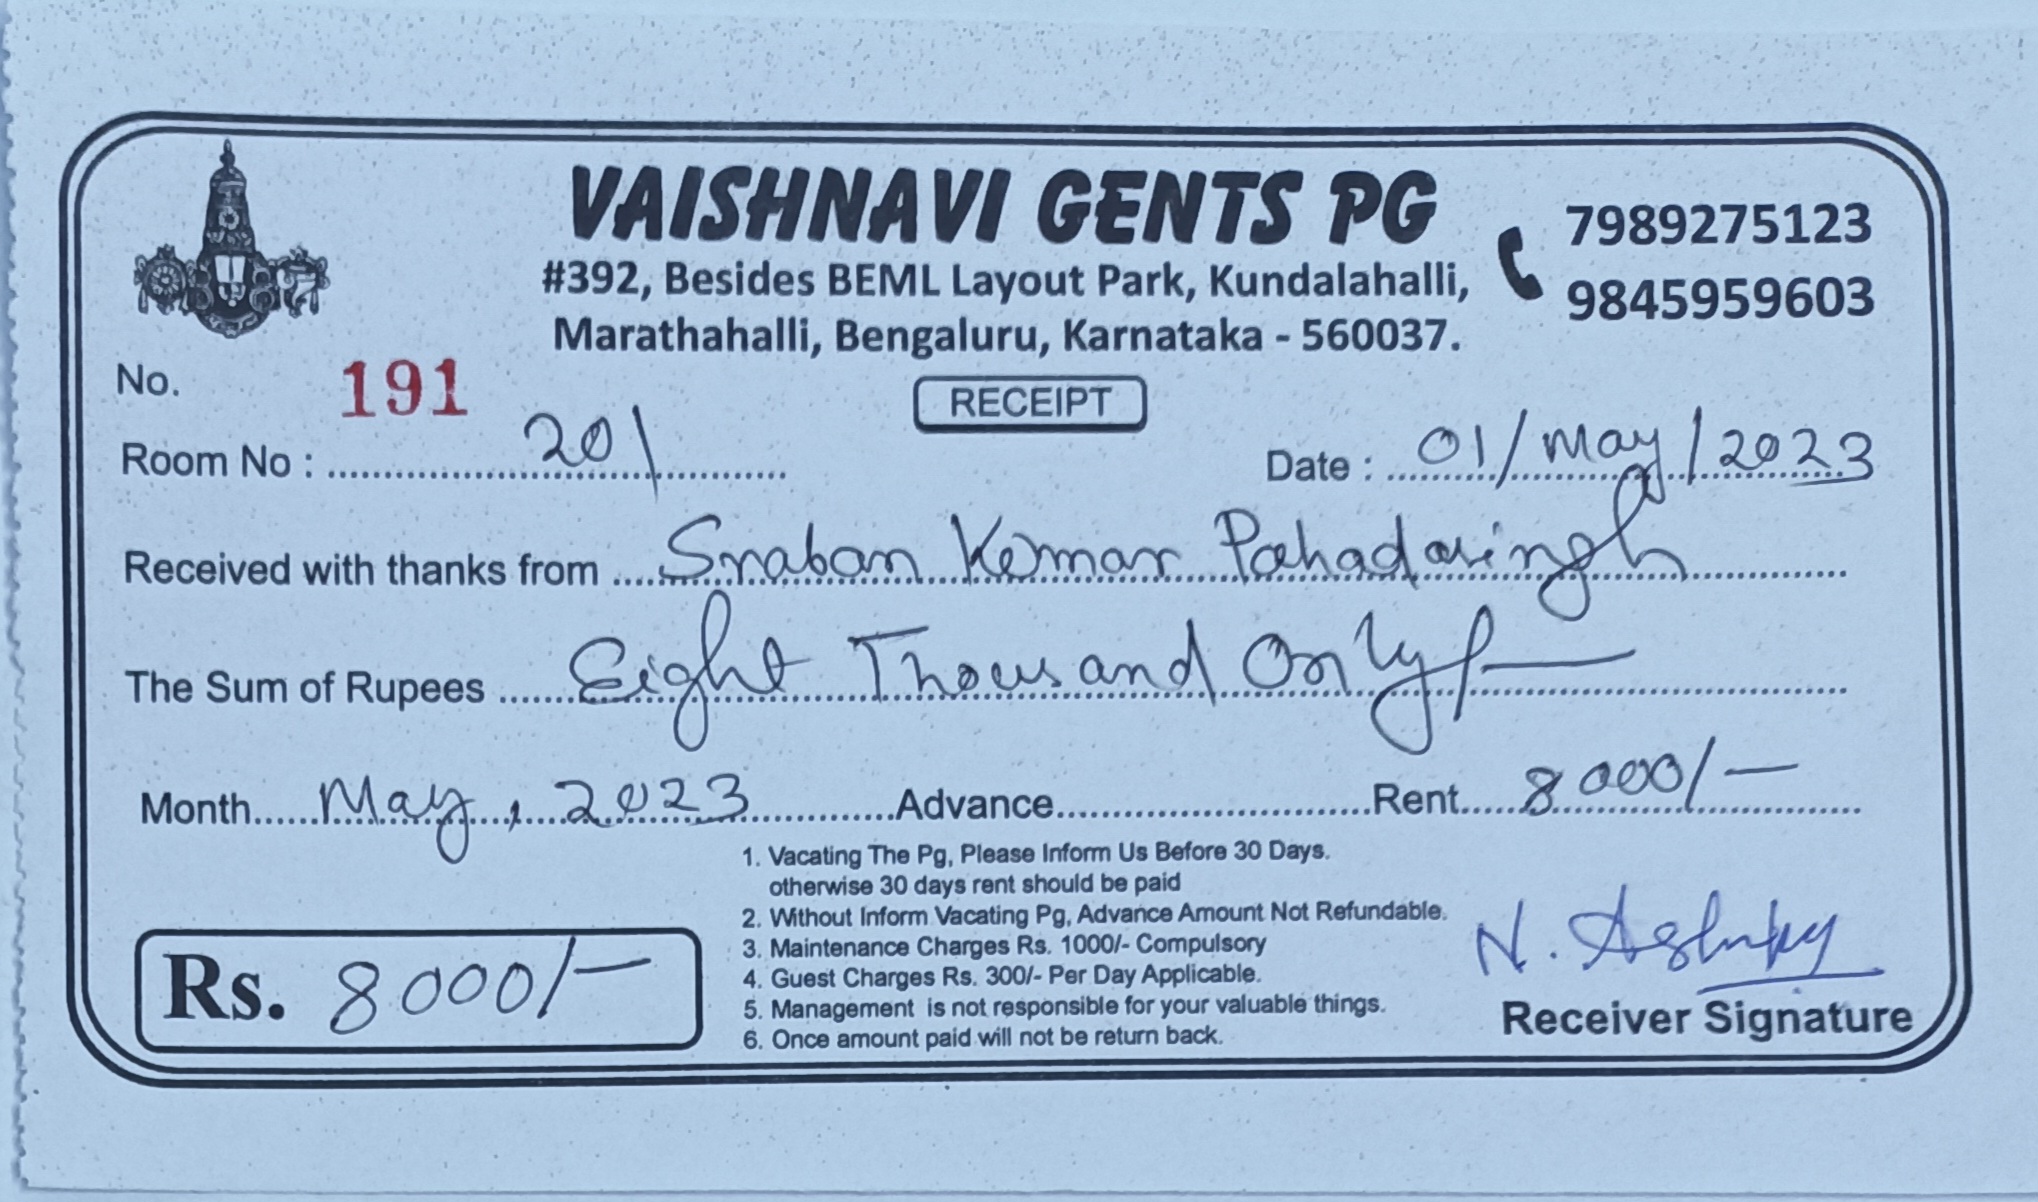 VAISHNAVI GENTS PG
7989275123
#392, Besides BEML Layout Park, Kundalahalli,
9845959603
Marathahalli, Bengaluru, Karnataka - 560037.
No. 191
RECEIPT
Room No : 201 Date : 01/May/2023
Received with thanks from Sraban Kumar Pahadasingh
The Sum of Rupees Eight Thousand Only/-
Month May, 2023 Advance Rent 8000/-
1. Vacating The Pg, Please Inform Us Before 30 Days.
otherwise 30 days rent should be paid
2. Without Inform Vacating Pg, Advance Amount Not Refundable.
3. Maintenance Charges Rs. 1000/- Compulsory
4. Guest Charges Rs. 300/- Per Day Applicable.
5. Management is not responsible for your valuable things.
6. Once amount paid will not be return back.
Rs. 8000/-
N.
Receiver Signature